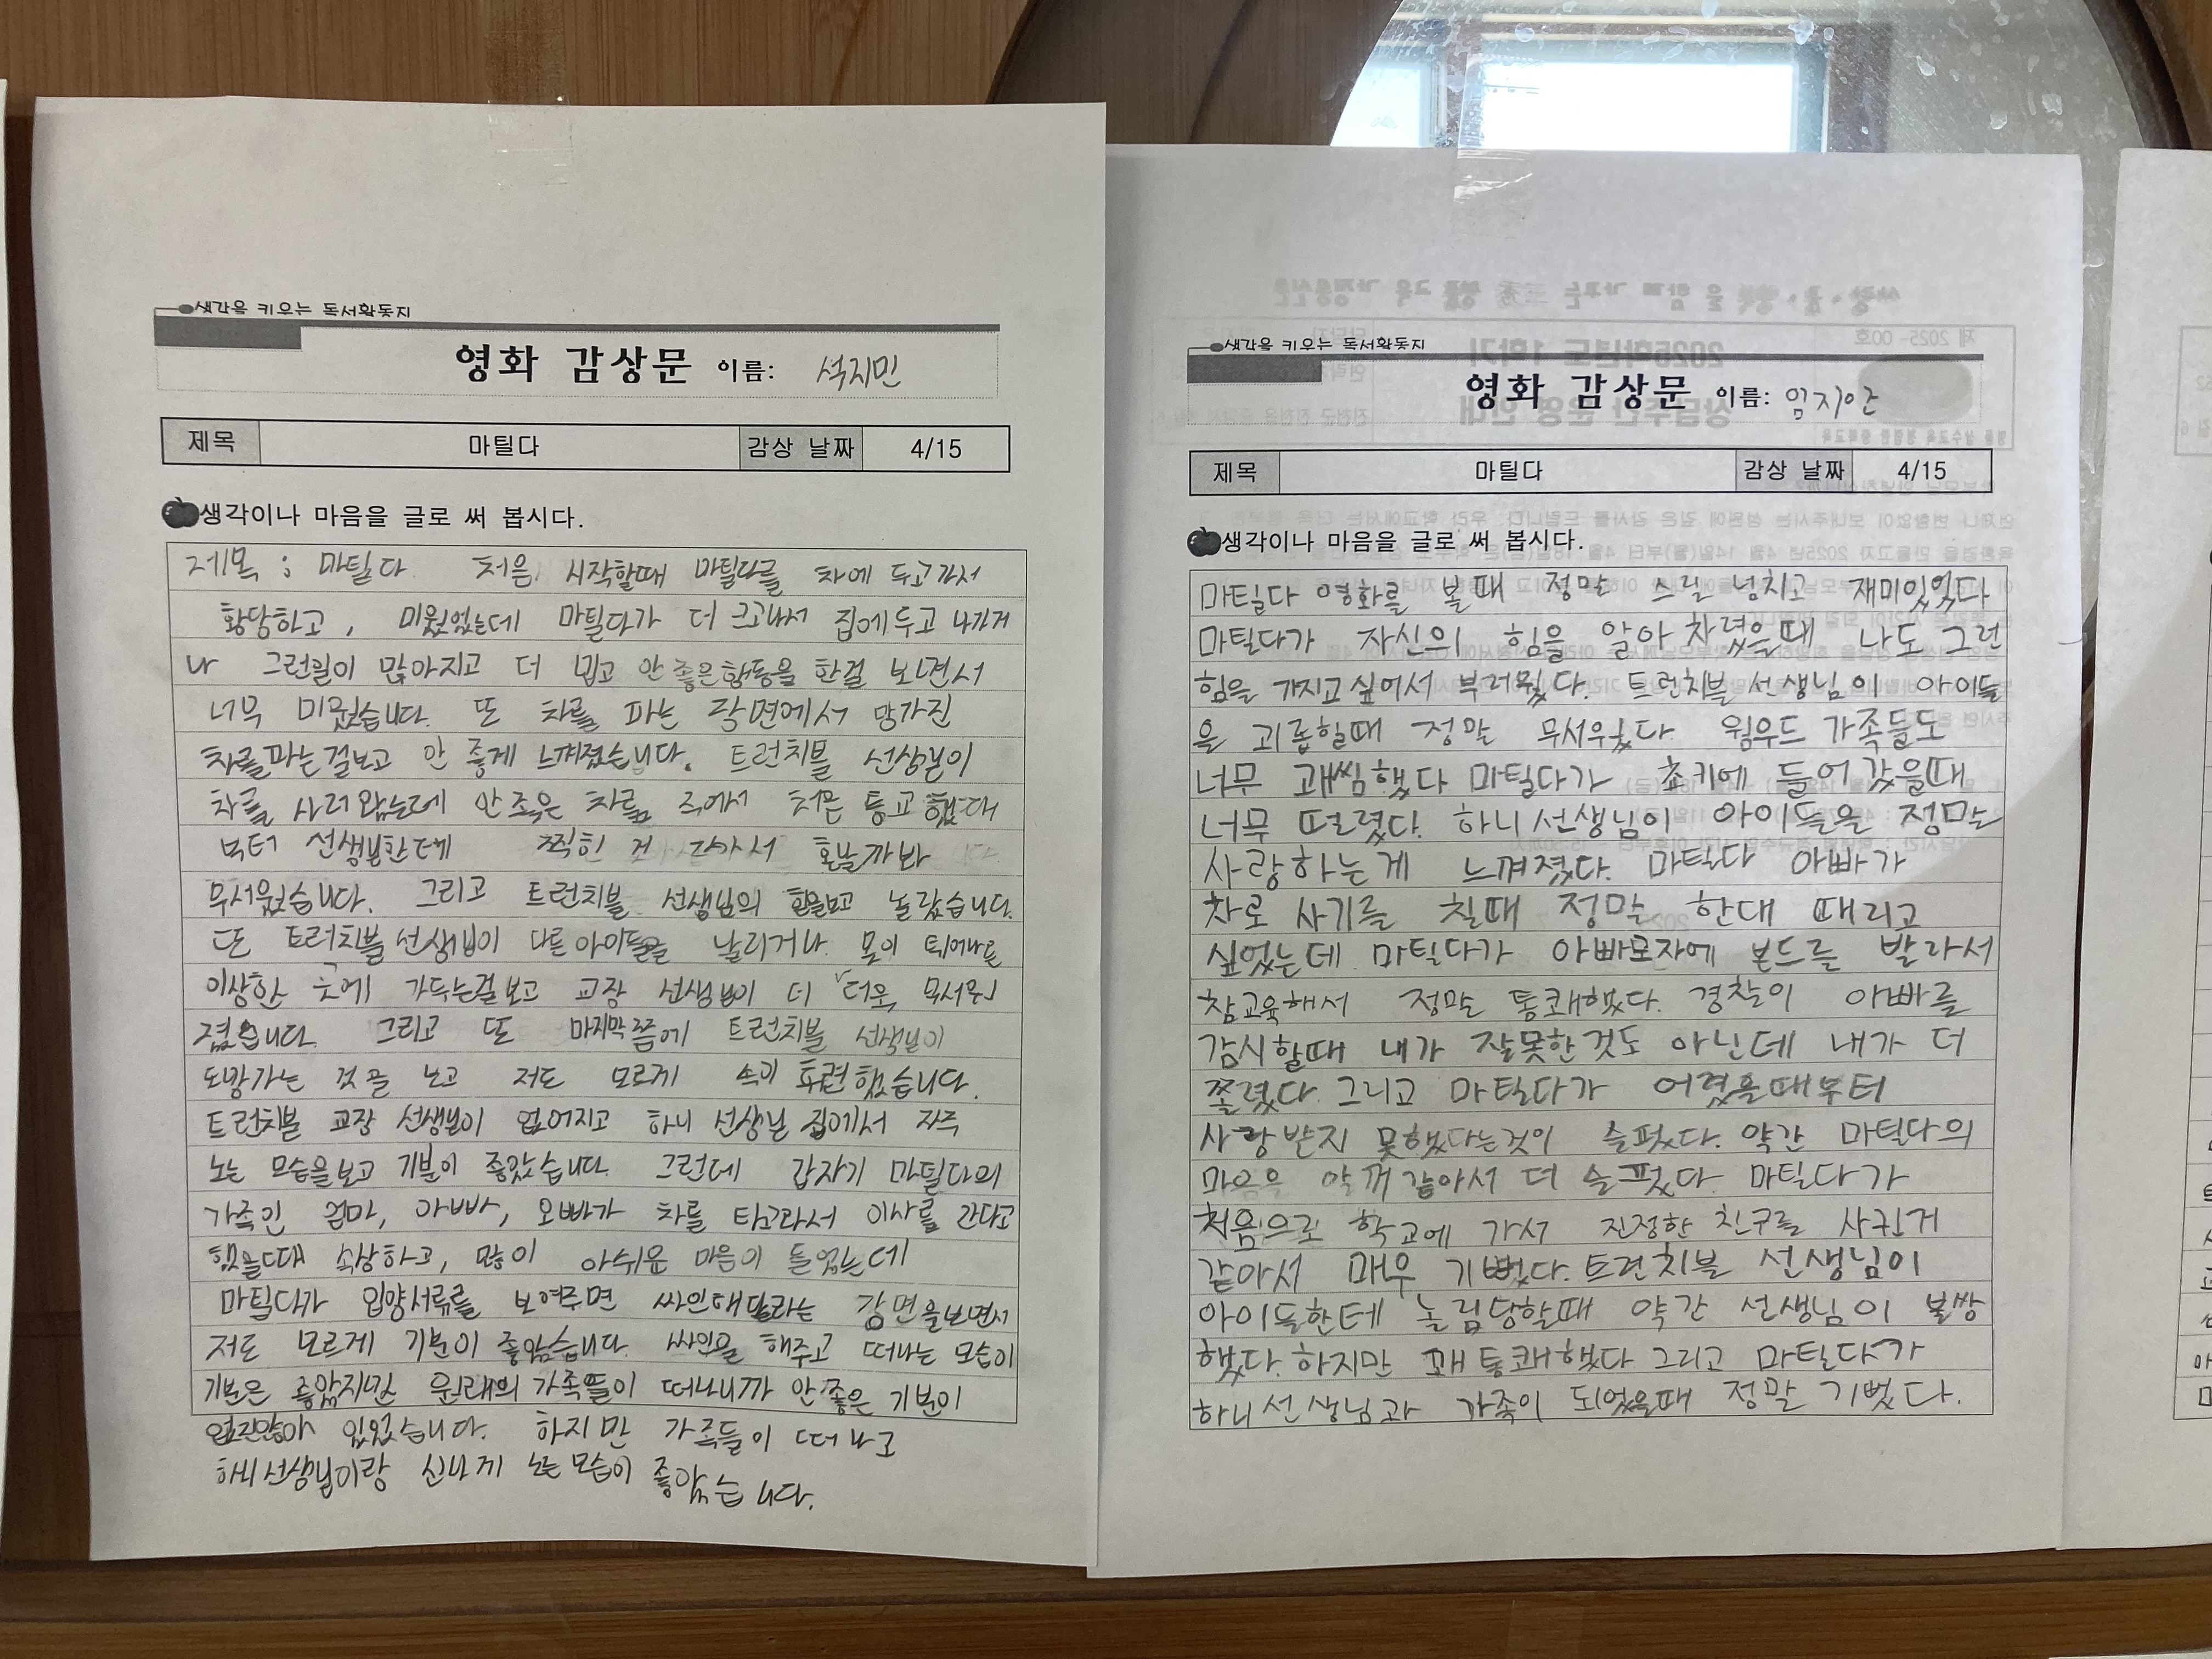 생각을 키우는 독서활동지
영화 감상문 이름: 석지민
제목 마틸다 감상 날짜 4/15
생각이나 마음을 글로 써 봅시다.
제목 : 마틸다 처음 시작할때 마틸다를 차에 두고가서
황당하고, 미웠었는데 마틸다가 더 크고나서 집에두고 나가거
나 그런일이 많아지고 더 밉고 안좋은행동을 한걸 보면서
너무 미웠습니다. 또 차를 파는 장면에서 망가진
차를파는걸보고 안 좋게 느껴졌습니다. 트런치블 선생님이
차를 사러 왔는데 안 좋은 차를 줘서 처음 등교했을때
부터 선생님한테 찍힌 것 같아서 혼날까봐
무서웠습니다. 그리고 트런치블 선생님의 힘을보고 놀랐습니다.
또 트런치블선생님이 다른아이들을 날리거나 못이 튀어나온
이상한 곳에 가두는걸보고 교장 선생님이 더 더욱 무서워
졌습니다. 그리고 또 마지막쯤에 트런치블 선생님이
도망가는 것을 보고 저도 모르게 속이 후련했습니다.
트런치블 교장 선생님이 없어지고 하니 선생님 집에서 자주
노는 모습을보고 기분이 좋았습니다. 그런데 갑자기 마틸다의
가족인 엄마, 아빠, 오빠가 차를 타고라서 이사를 간다고
했을때 속상하고, 많이 아쉬운 마음이 들었는데
마틸다가 입양서류를 보여주면 싸인해달라는 장면을보면서
저도 모르게 기분이 좋았습니다. 싸인을 해주고 떠나는 모습이
기분은 좋았지만 원래의가족들이 떠나니까 안좋은 기분이
없진않아 있었습니다. 하지만 가족들이 떠나고
하니선생님이랑 신나게 노는모습이 좋았습니다.
생각을 키우는 독서활동지
영화 감상문 이름: 임지안
제목 마틸다 감상 날짜 4/15
생각이나 마음을 글로 써 봅시다.
마틸다 영화를 볼때 정말 스릴 넘치고 재미있었다
마틸다가 자신의 힘을 알아차렸을때 나도 그런
힘을 가지고싶어서 부러웠다. 트런치블선생님이 아이들
을 괴롭힐때 정말 무서웠다 웜우드 가족들도
너무 괘씸했다 마틸다가 쵸키에 들어갔을때
너무 떨렸다. 하니선생님이 아이들을 정말
사랑하는게 느껴졌다. 마틸다 아빠가
차로 사기를 칠때 정말 한대 때리고
싶었는데 마틸다가 아빠모자에 본드를 발라서
참교육해서 정말 통쾌했다. 경찰이 아빠를
감시할때 내가 잘못한것도 아닌데 내가 더
쫄렸다. 그리고 마틸다가 어렸을때부터
사랑받지 못했다는것이 슬펐다. 약간 마틸다의
마음을 알꺼같아서 더 슬펐다. 마틸다가
처음으로 학교에 가서 진정한 친구를 사귄거
같아서 매우 기뻤다. 트런치블 선생님이
아이들한테 놀림당할때 약간 선생님이 불쌍
했다. 하지만 꽤 통쾌했다 그리고 마틸다가
하니선생님과 가족이 되었을때 정말 기뻤다.